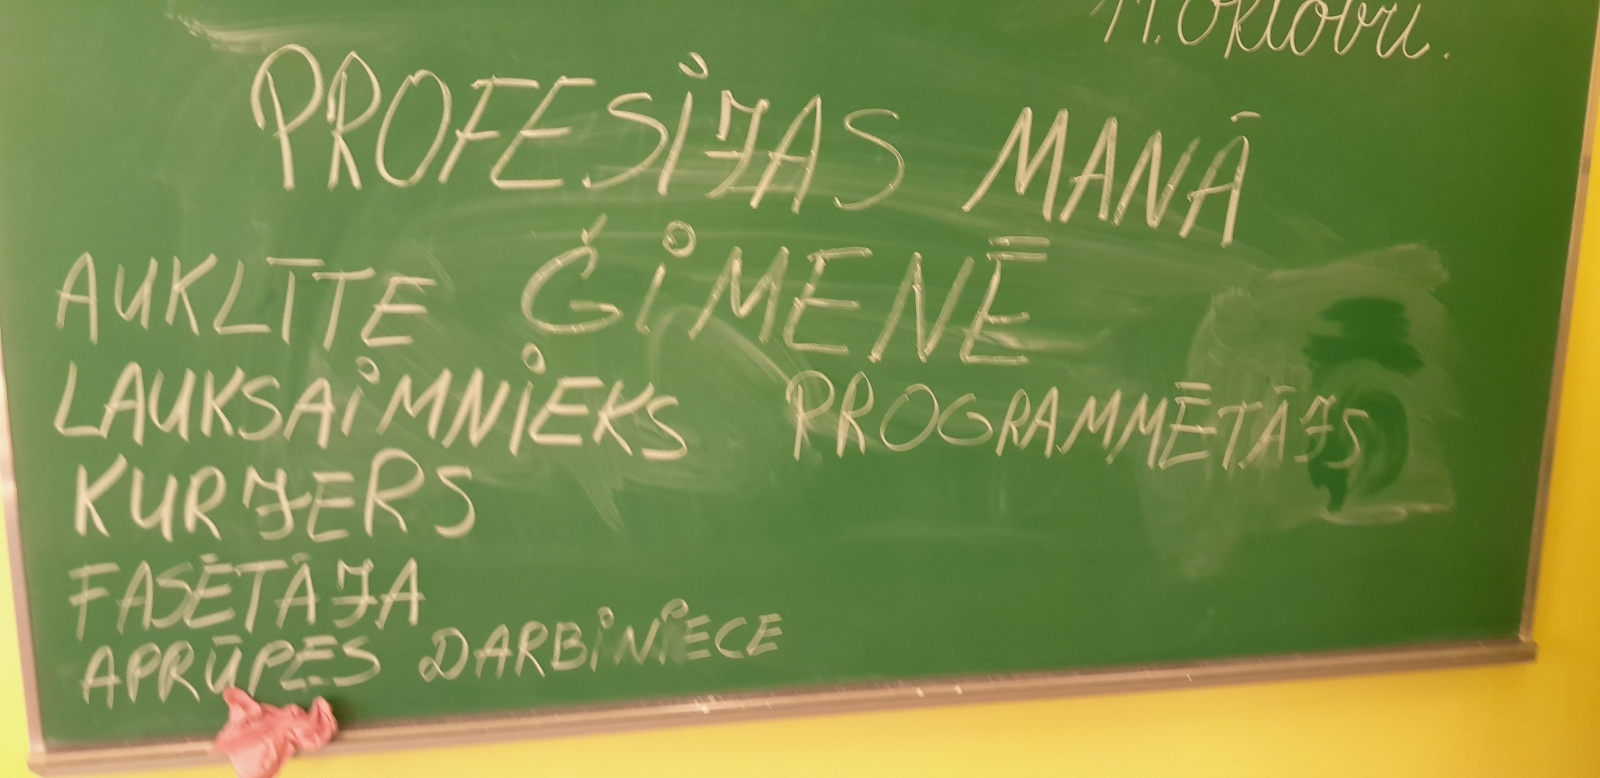 11. oktobrī.
PROFESIJAS MANĀ
ĢIMENĒ
AUKLĪTE
LAUKSAIMNIEKS PROGRAMMĒTĀJS
KURJERS
FASĒTĀJA
APRŪPES DARBINIECE